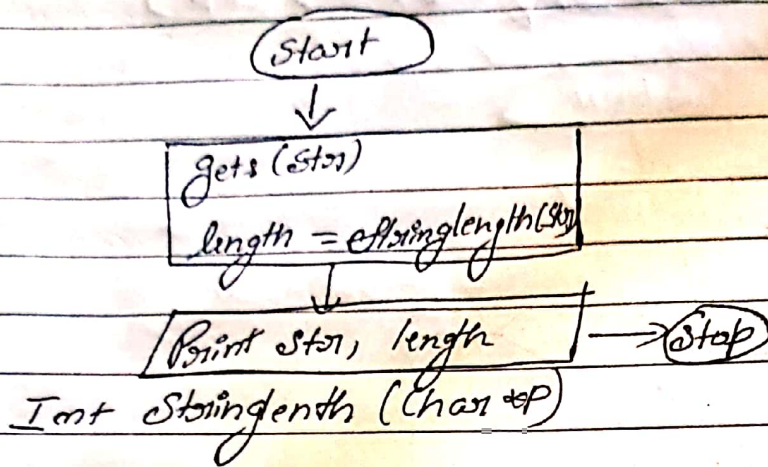 Start
gets (str)
length = stringlength(str)
Print str, length
Stop
Int Stringlenth (Char *P)